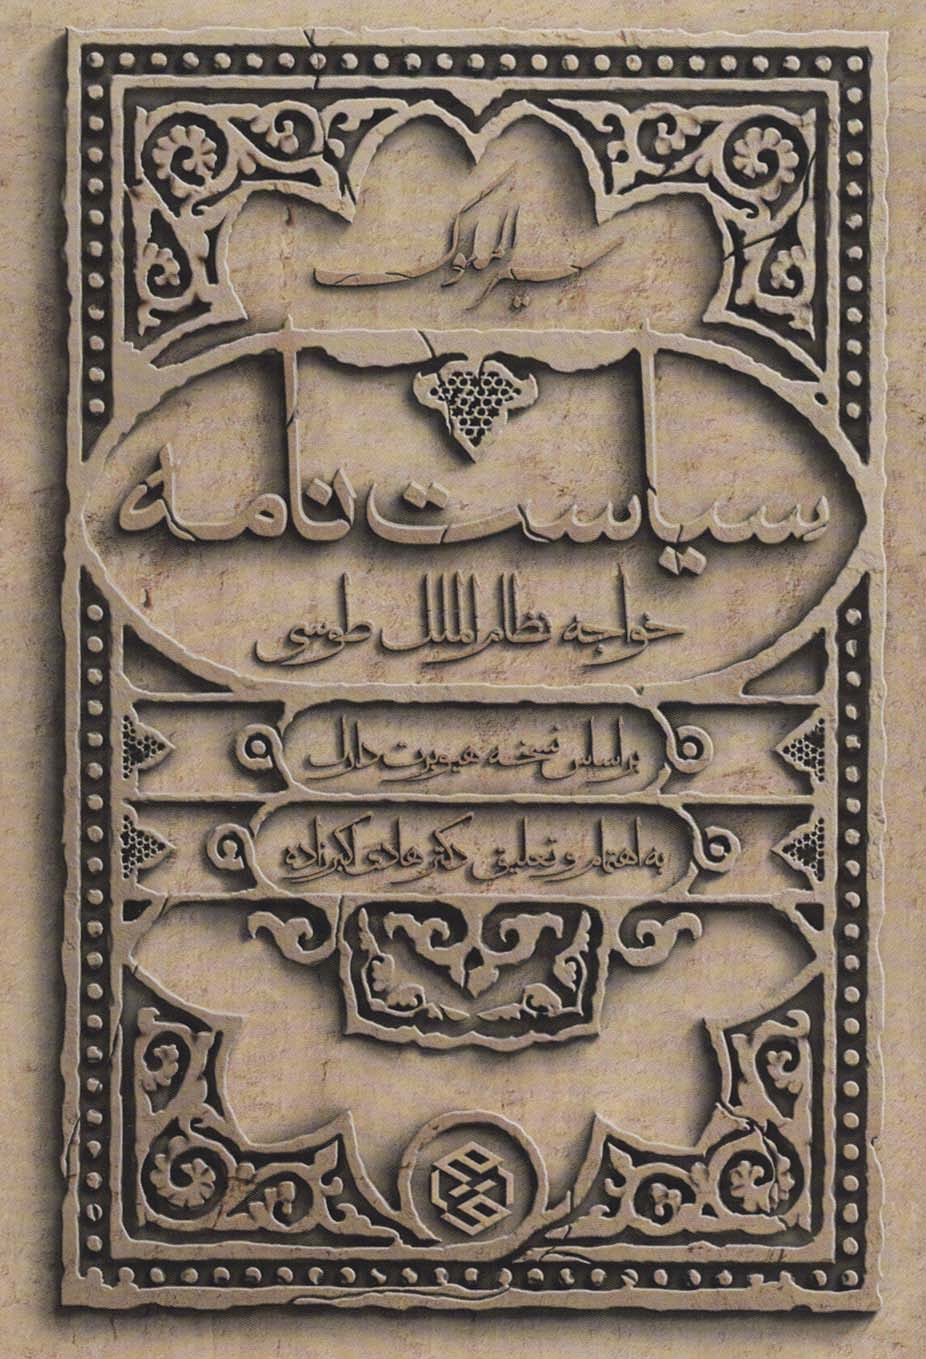 سیرالملوک
سیاست‌نامه
خواجه نظام الملک طوسی
بر اساس نسخه هیوبرت دارک
به اهتمام و تعلیق دکتر هادی اکبرزاده